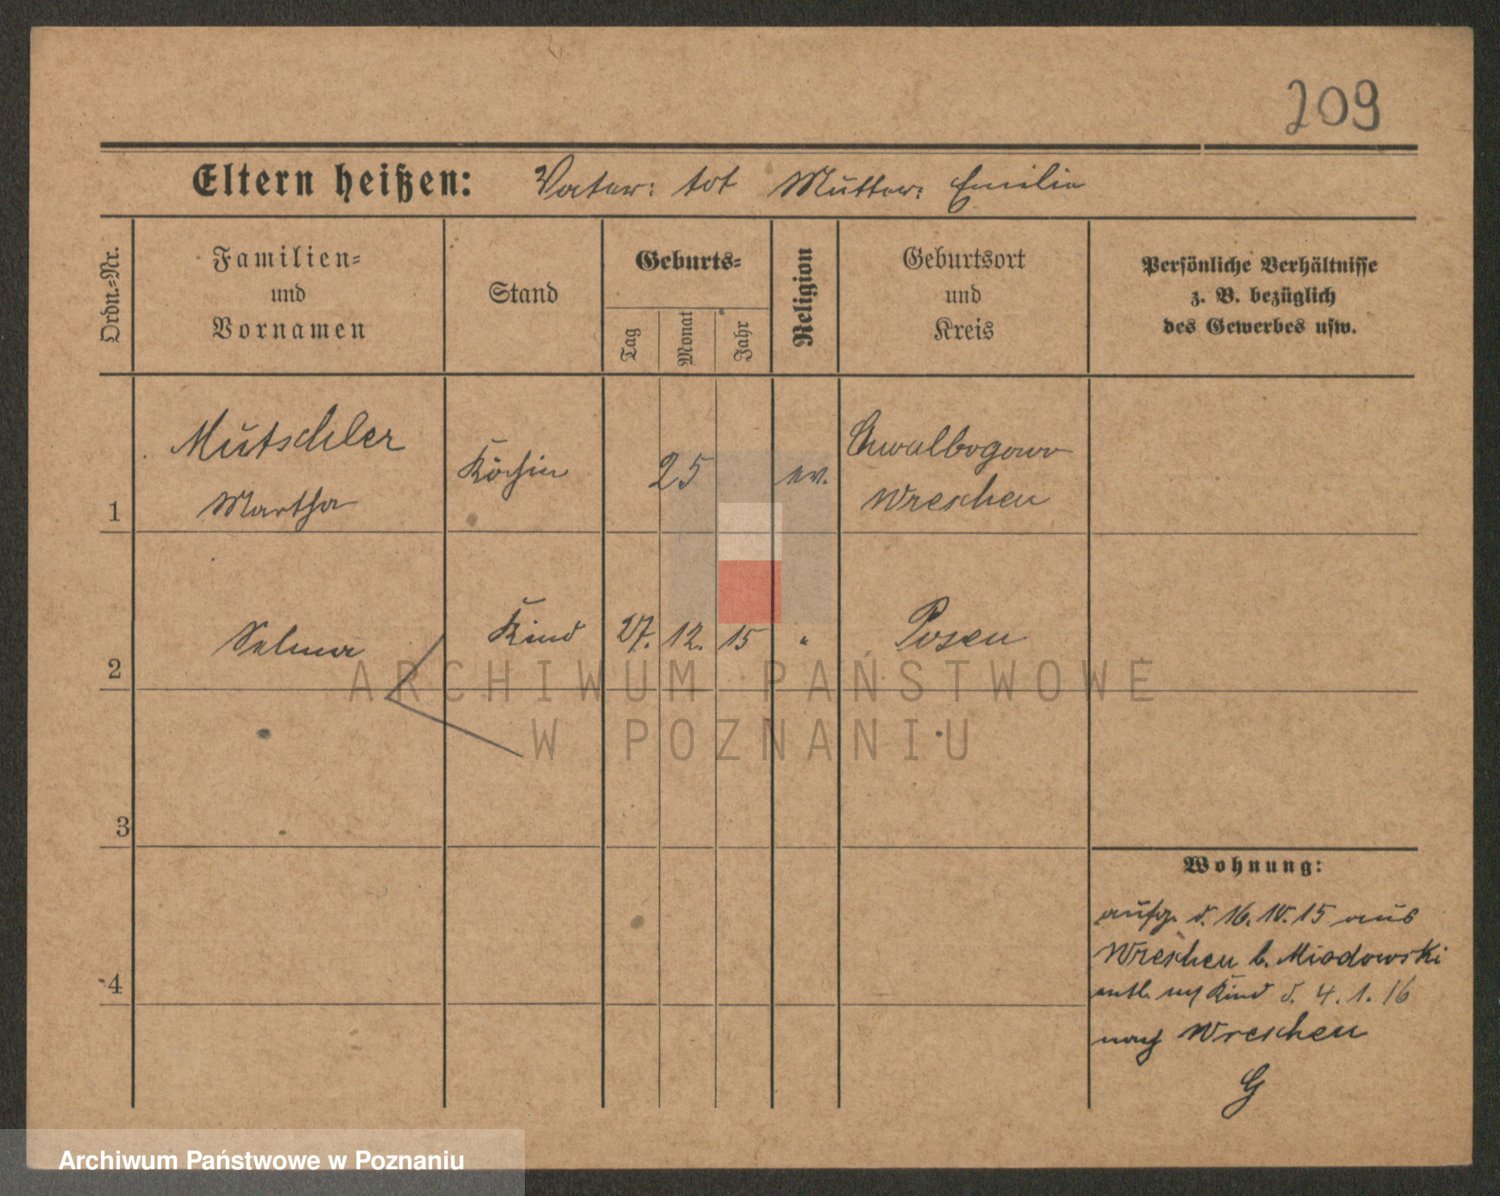 209
Eltern heißen: Vater: tot Mutter: Emilie
Ordn.-Nr.
Familien-
und
Vornamen
Stand
Geburts-
Tag
Monat
Jahr
Religion
Geburtsort
und
Kreis
Persönliche Verhältnisse
z. B. bezüglich
des Gewerbes usw.
1
Mutschler
Martha
Köchin
25
ev.
Chwalbogowo
Wreschen
2
Selma
Kind
27. 12. 15
"
Posen
ARCHIWUM PAŃSTWOWE
W POZNANIU
3
4
Wohnung:
d. 16. 10. 15 aus
Wreschen b. Miodowski
entl. Kind d. 4. 1. 16
nach Wreschen
G
Archiwum Państwowe w Poznaniu